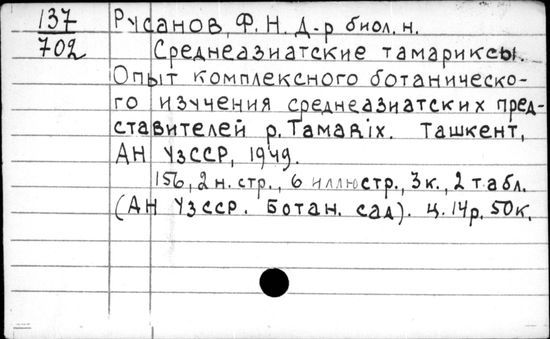 137
702
Русанов, Ф. Н. Д-р биол. н.
Среднеазиатские тамариксы.
Опыт комплексного ботаническо-
го изучения среднеазиатских пред-
ставителей р. Tamarix. Ташкент,
АН УзССР, 1949.
156, 2 н. стр., 6 иллюстр., 3 к., 2 табл.
(АН УзССР. Ботан. сад). Ц. 14 р. 50 к.